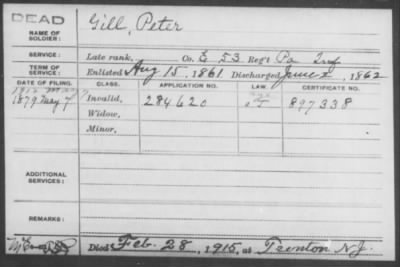 DEAD
NAME OF SOLDIER: Gill, Peter
SERVICE: Late rank, Co. E 53 Reg't Pa Inf
TERM OF SERVICE: Enlisted Aug 15, 1861 Discharged June 2, 1862
DATE OF FILING. CLASS. APPLICATION NO. LAW. CERTIFICATE NO.
1879 May 7 Invalid, 284620 897338
Widow,
Minor,
ADDITIONAL SERVICES:
REMARKS:
Died Feb. 28, 1915, at Trenton N.J.